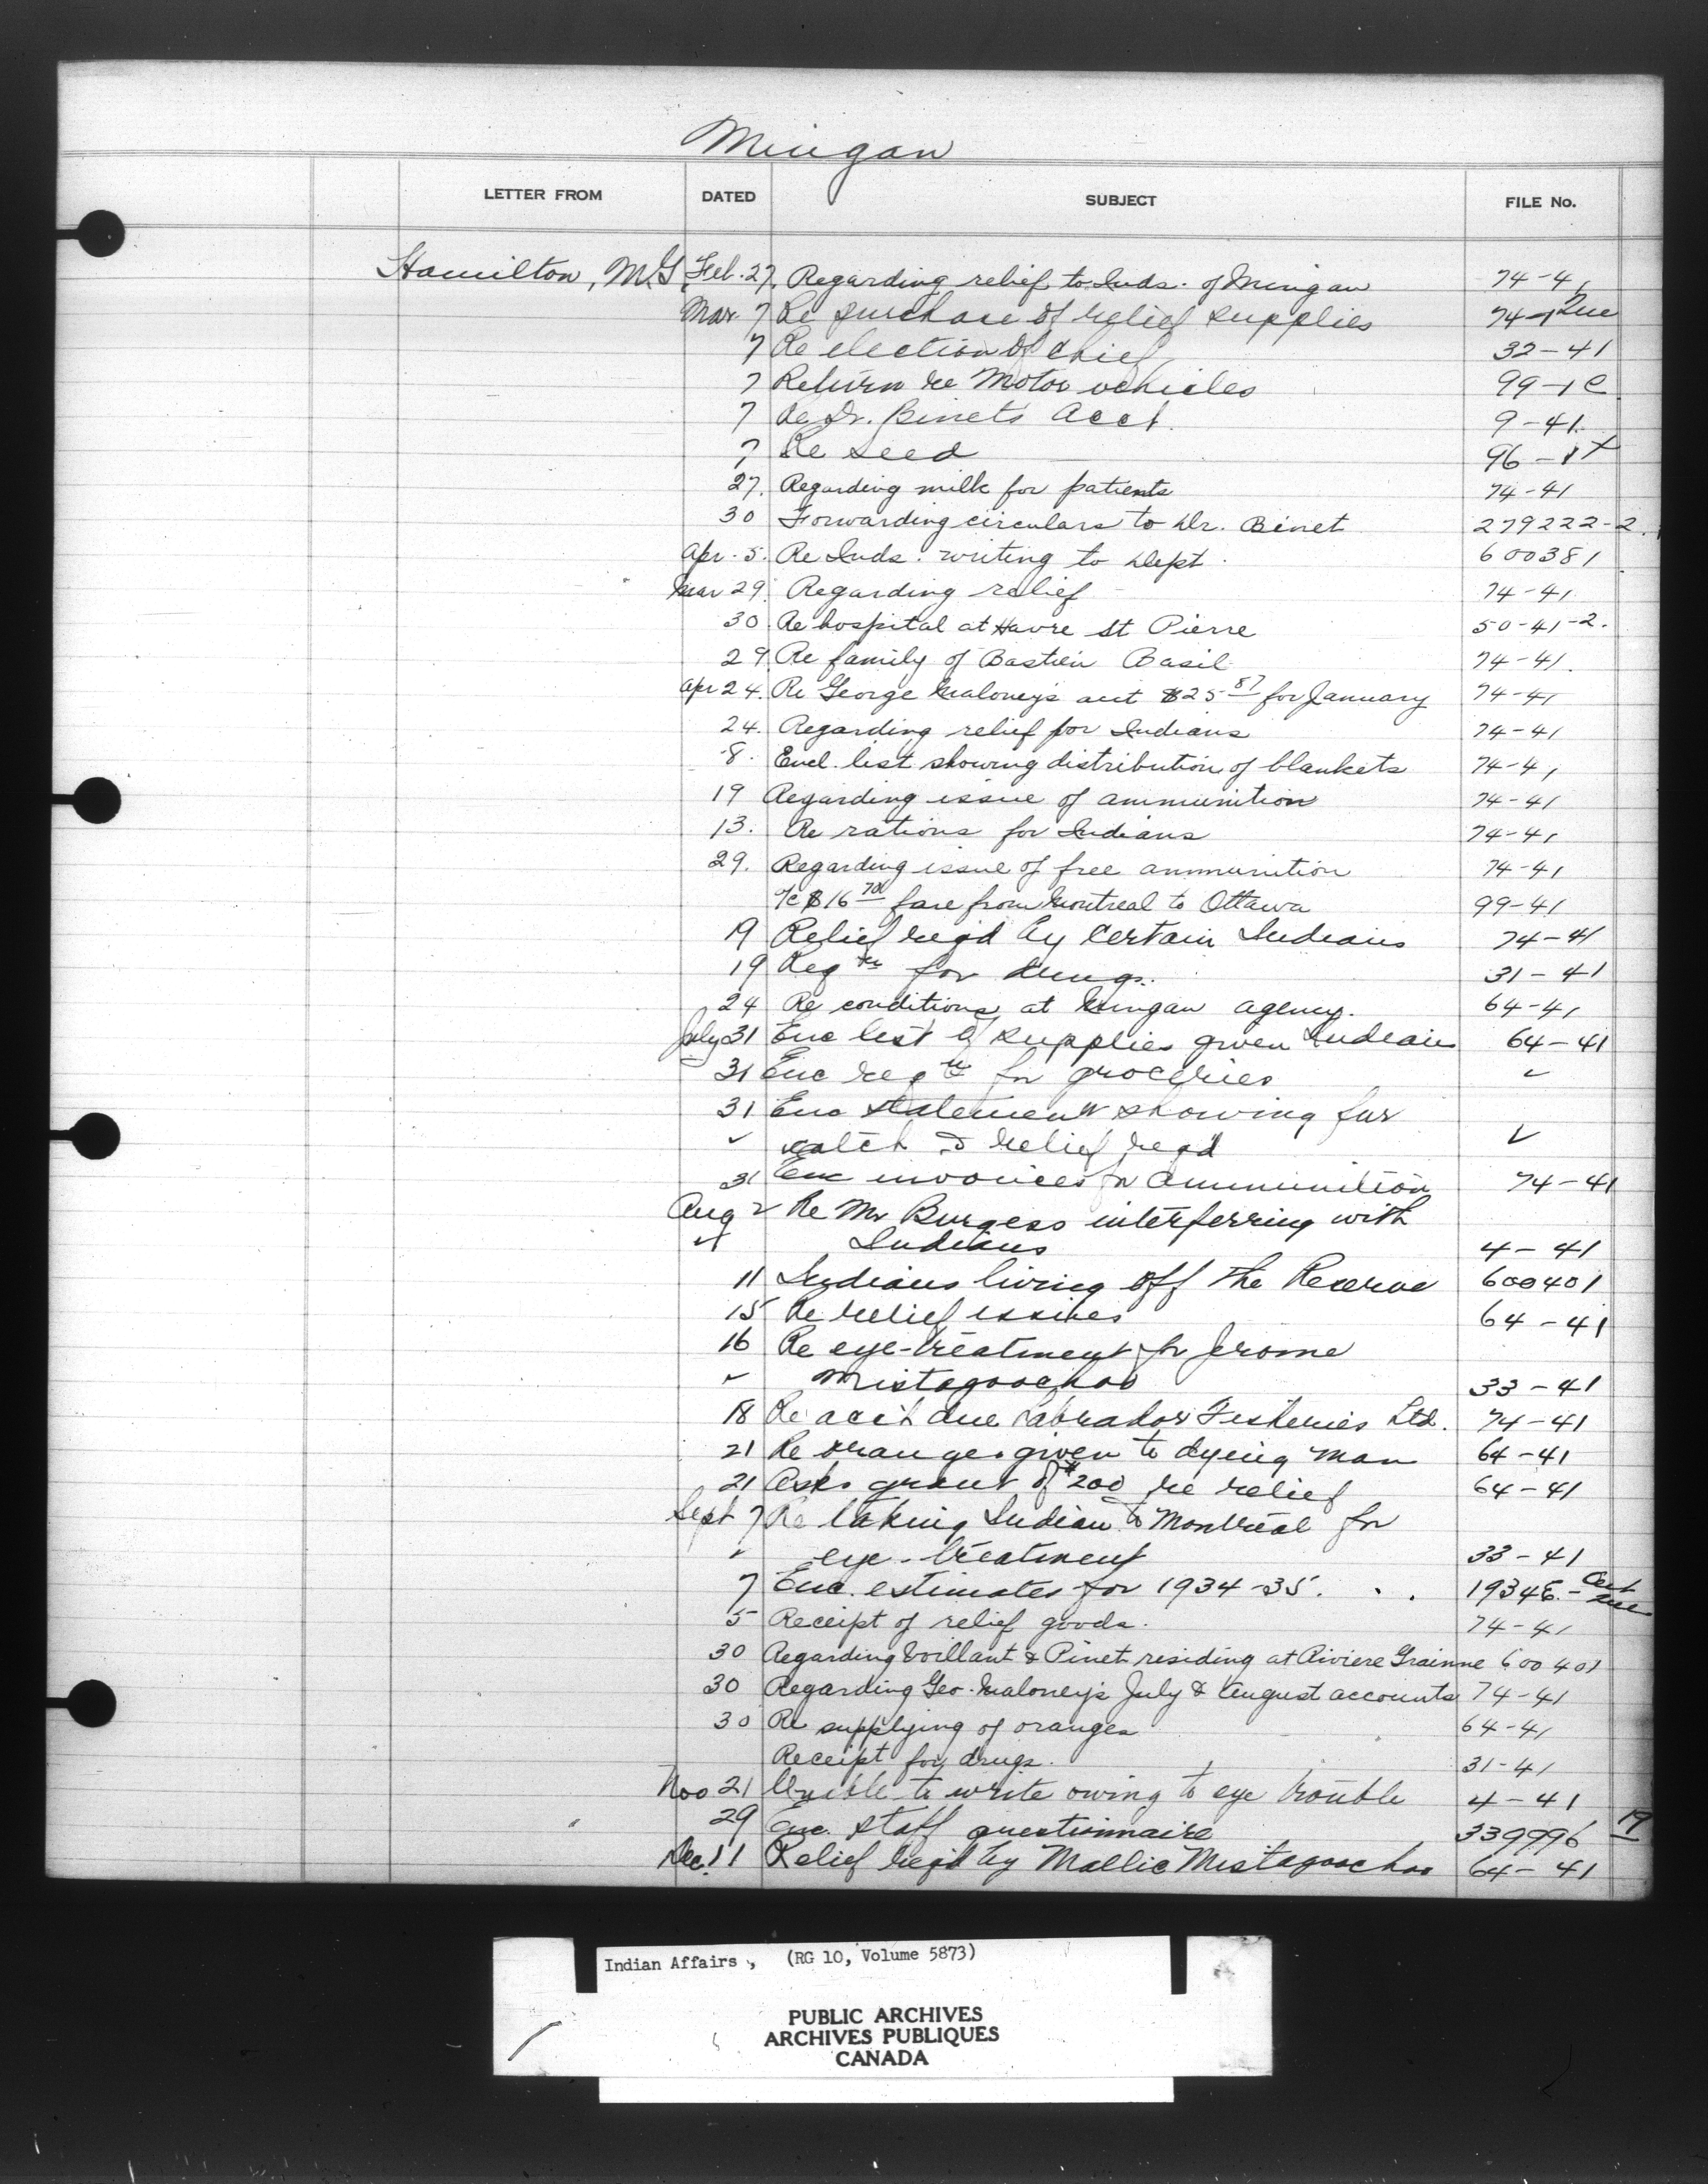 Mingan
LETTER FROM DATED SUBJECT FILE No.
Hamilton, M.G. Feb. 27. Regarding relief to Inds. of Mingan 74-41
Mar. 7 Re purchase of relief supplies 74-1 Que
7 Re election of Chief 32-41
7 Return re Motor vehicles 99-1C
7 Re Dr. Binet's Acct. 9-41
7 Re seed 96-1
27. Regarding milk for patients 74-41
30 Forwarding circulars to Dr. Binet 279222-2.
Apr. 5. Re Inds. writing to Dept. 600381
Mar 29. Regarding relief 74-41
30. Re hospital at Havre St Pierre 50-41-2.
29 Re family of Bastien Basil 74-41.
Apr 24. Re George Maloney's acct $25 87 for January 74-41
24. Regarding relief for Indians 74-41
8. Encl. list showing distribution of blankets 74-41
19 Regarding issue of ammunition 74-41
13. Re rations for Indians 74-41
29. Regarding issue of free ammunition 74-41
Re $16 70 fare from Montreal to Ottawa 99-41
19 Relief reqd by certain Indians 74-41
19 Reqtn for drugs. 31-41
24 Re conditions at Mingan agency. 64-41
July 31 Enc list of supplies given Indians 64-41
31 Enc reqtn for groceries ✓
31 Enc statement showing fur
✓ catch & relief reqd ✓
31 Enc invoices for ammunition 74-41
Aug 2 Re Mr Burgess interferring with
✓ Indians 4-41
11 Indians living off the Reserve 600401
15 Re relief issues 64-41
16 Re eye-treatment for Jerome
✓ Mistagoochoo 33-41
18 Re acct due Labrador Fisheries Ltd. 74-41
21 Re oranges given to dying man 64-41
21 Asks grant of $200 re relief 64-41
Sept 7 Re taking Indian to Montreal for
✓ eye-treatment 33-41
7 Enc. estimates for 1934-35. . . 1934E.-
5 Receipt of relief goods. 74-41
30 Regarding Voillant & Pinet residing at Riviere Grainne 600401
30 Regarding Geo. Maloney's July & August accounts 74-41
30 Re supplying of oranges 64-41
Receipt for drugs. 31-41
Nov 21 Unable to write owing to eye trouble 4-41
29 Enc. staff questionnaire 339996 19
Dec. 11 Relief reqd by Mallie Mistagoochoo 64-41
Indian Affairs, (RG 10, Volume 5873)
PUBLIC ARCHIVES
ARCHIVES PUBLIQUES
CANADA